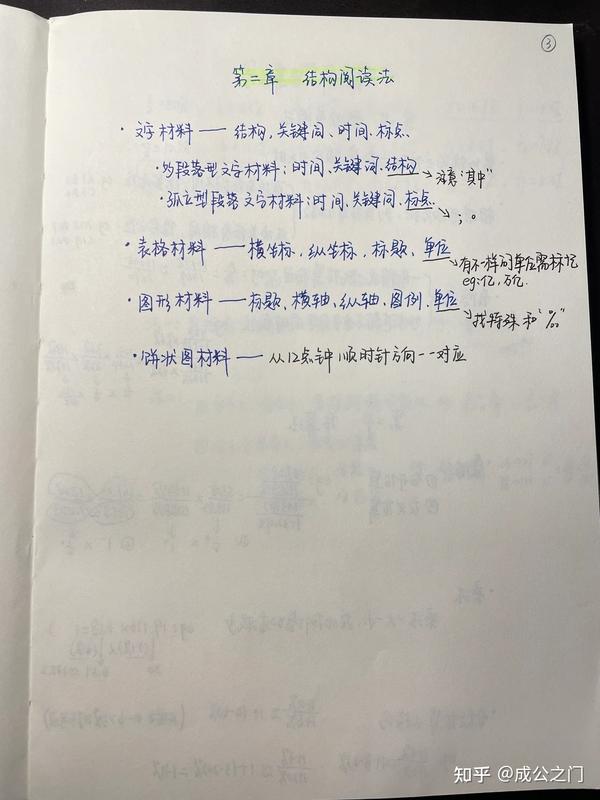 ③
第二章 结构阅读法
· 文字材料 —— 结构、关键词、时间、标点
· 多段落型文字材料：时间、关键词、结构 → 注意"其中"
· 孤立型段落文字材料：时间、关键词、标点 → ；。
· 表格材料 —— 横坐标，纵坐标，标题、单位
→ 有不一样的单位需标记
eg:亿,万亿.
· 图形材料 —— 标题、横轴、纵轴、图例、单位
→ 找特殊和"‰"
· 饼状图材料 —— 从12点钟顺时针方向一一对应
知乎 @成公之门